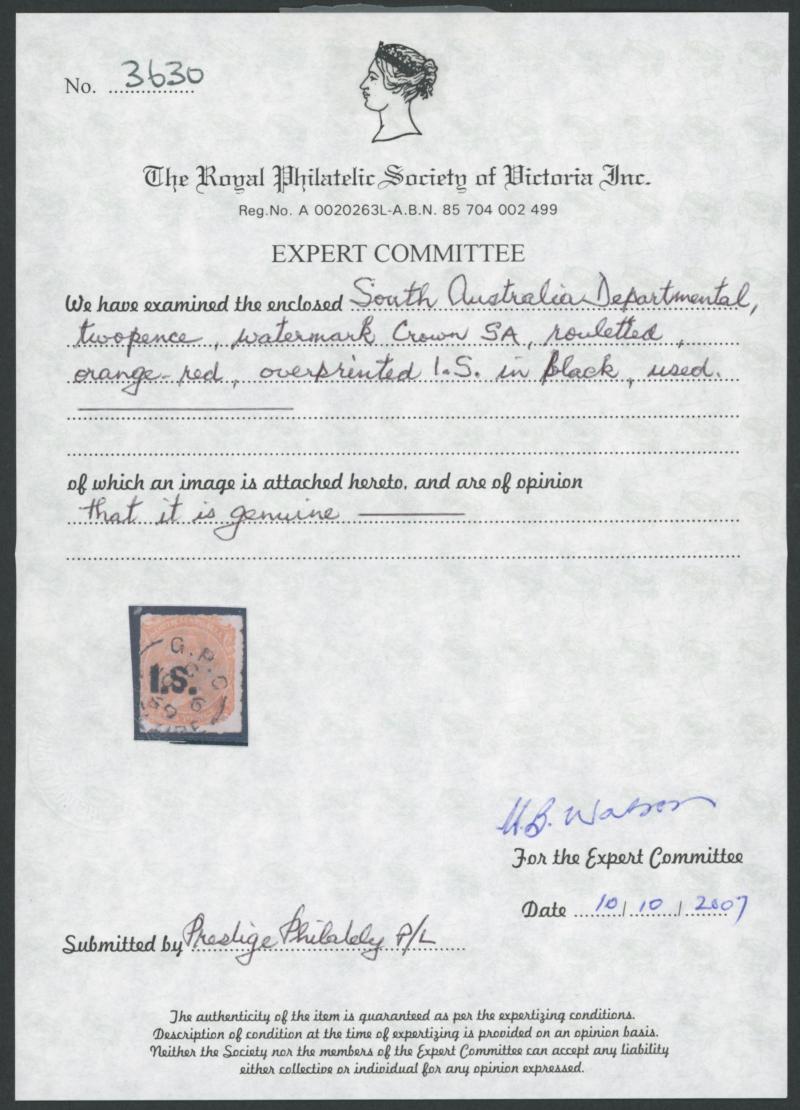 No. 3630
The Royal Philatelic Society of Victoria Inc.
Reg.No. A 0020263L-A.B.N. 85 704 002 499
EXPERT COMMITTEE
We have examined the enclosed South Australia Departmental,
twopence, watermark Crown SA, rouletted,
orange-red, overprinted I.S. in black, used.
of which an image is attached hereto, and are of opinion
that it is genuine
G.P.O
I.S.
H.B. Watson
For the Expert Committee
Date 10/10/2007
Submitted by Prestige Philately P/L
The authenticity of the item is guaranteed as per the expertizing conditions.
Description of condition at the time of expertizing is provided on an opinion basis.
Neither the Society nor the members of the Expert Committee can accept any liability
either collective or individual for any opinion expressed.